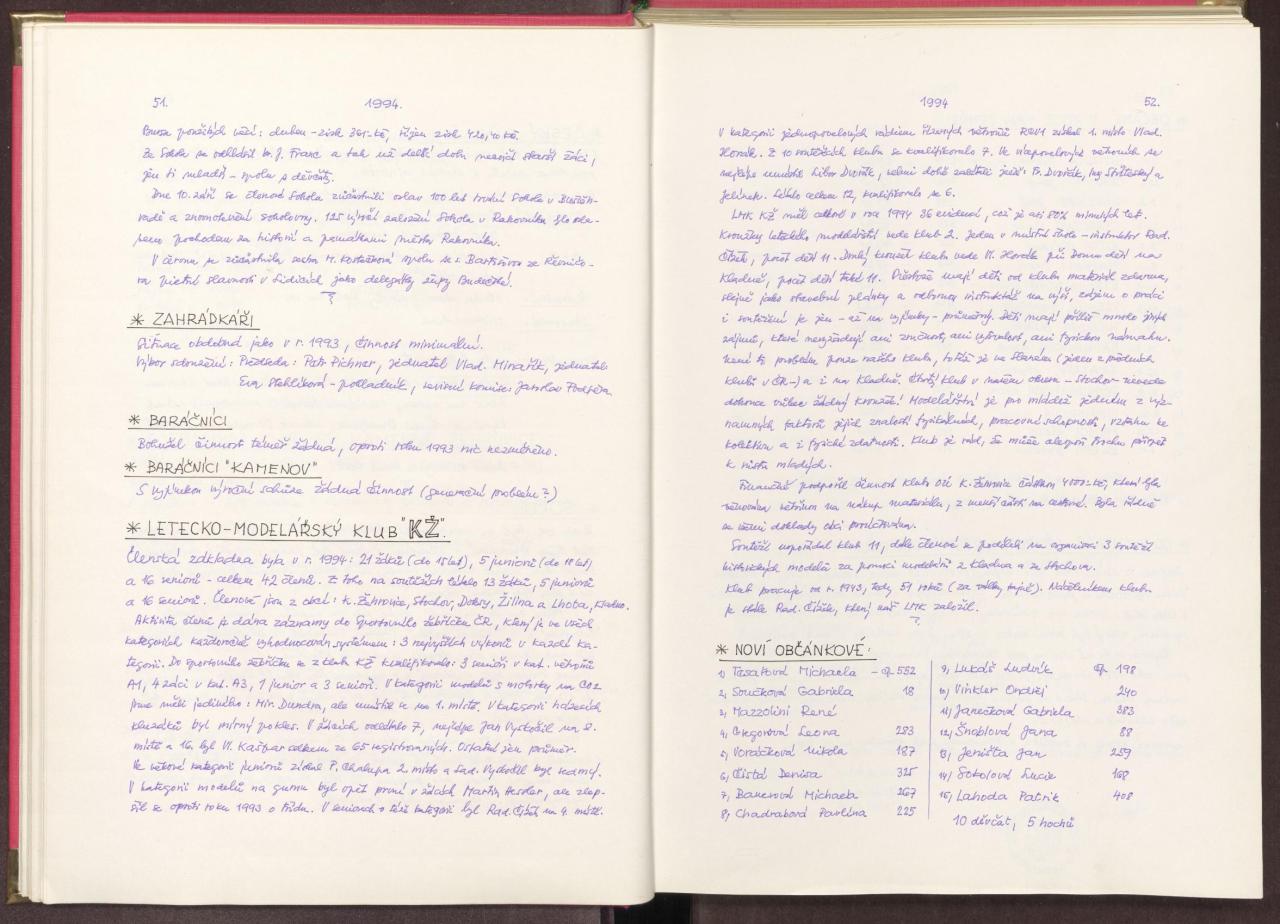 51. 1994.
Bursa použitých věcí: duben – zisk 361.-Kč, říjen zisk 420,40 Kč.
Ze Sokola se odhlásil br. J. Franc a tak už delší dobu necvičí starší žáci,
jen ti mladší – spolu s děvčaty.
Dne 10. září se členové Sokola zúčastnili oslav 100 let trvání Sokola v
radě a znovuotevření sokolovny. 125 výročí založení Sokola v Rakovníku bylo
peno pochodem za historií a památkami města Rakovníka.
V červnu se zúčastnila sestra M. Kortusová spolu se s. Bartošovou ze Řevničo-
va pietní slavnosti v Lidicích jako delegátky župy Budečské.
* ZAHRÁDKÁŘI
Situace obdobná jako v r. 1993, činnost minimální.
Výbor sdružení: Předseda: Petr Pichner, jednatel Vlad. Minařík, jednatel:
Eva Stehlíková – pokladník, revizní komise: Jaroslav Podsěra
* BARÁČNÍCI
Bohužel činnost téměř žádná, oproti roku 1993 nic nezměněno.
* BARÁČNÍCI "KAMENOV"
S vyjímkou výroční schůze žádná činnost (generační problém?)
* LETECKO-MODELÁŘSKÝ KLUB "KŽ".
Členská základna byla v r. 1994: 21 žáků (do 15 let), 5 juniorů (do 18 let)
a 16 seniorů – celkem 42 členů. Z toho na soutěžích létalo 13 žáků, 5 juniorů
a 16 seniorů. Členové jsou z obcí: K. Žehrovice, Stochov, Doksy, Žilina a Lhota, Kladno.
Aktivita členů je dána záznamy do Sportovního žebříčku ČR, který je ve všech
kategoriích každoročně vyhodnocován systémem: 3 nejvyšších výkonů v každé ka-
tegorii. Do sportovního žebříčku se z klubu KŽ kvalifikovalo: 3 senioři v kat. větroňů
A1, 4 žáci v kat. A3, 1 junior a 3 senioři. V kategorii modelů s motorky na CO2
jsme měli jediného: Mir. Dundra, ale umístil se na 1. místě. V kategorii házecích
kluzáků byl mírný pokles. V žácích odlétalo 7, nejlépe Jan Vyskočil na 2.
místě a 16. byl Vl. Kašpar celkem ze 65 registrovaných. Ostatní jen průměr.
Ve věkové kategorii juniorů získal P. Chalupa 2. místo a Lad. Vyskočil byl sedmý.
V kategorii modelů na gumu byl opět první v žácích Martin Hessler, ale zlep-
šil se oproti roku 1993 o třídu. V seniorech v téže kategorii byl Rad. Čížek na 4. místě.
1994 52.
V kategorii jednopovelových rádiem řízených větroňů RCV1 získal 1. místo Vlad.
Horák. Z 10 soutěžících klubu se kvalifikovalo 7. Ve vícepovelových větroních se
nejlépe umístil Libor Dvořák, velmi dobře zalétali ještě: Fr. Dvořák, Ing. Stříteský a
Jelínek. Létalo celkem 12, kvalifikovalo se 6.
LMK KŽ měl celkově v roce 1994 36 evidencí, což je asi 80% minulých let.
Kroužky leteckého modelářství vede klub 2. Jeden v místní škole – instruktor Rad.
Čížek, počet dětí 11. Druhý kroužek klubu vede Vl. Horák při Domu dětí na
Kladně, počet dětí také 11. Přestože mají děti od klubu materiál zdarma,
stejně jako stavební plánky a odbornou instruktáž na výši, zájem o práci
i soutěžení je jen – až na vyjímky – průměrný. Děti mají příliš mnoho jiných
zájmů, které nevyžadují ani zručnost, ani vytrvalost, ani fyzickou námahu.
Není to problém pouze našeho klubu, totéž je ve Slaném (jeden z předních
klubů v ČR-) a i na Kladně. Čtvrtý klub v našem okrese – Stochov nevede
dokonce vůbec žádný kroužek! Modelářství je pro mládež jedním z výz-
namných faktorů jejich znalostí fyzikálních, pracovní schopnosti, vztahu ke
kolektivu a i fyzické zdatnosti. Klub je rád, že může alespoň trochu přispět
k růstu mladých.
Finančně podpořil činnost klubu OÚ K. Žehrovice částkou 4000.-Kč, která byla
věnována většinou na nákup materiálu, z menší části na cestovné. Byla řádně
se všemi doklady obci proúčtována.
Soutěží uspořádal klub 11, dále členové se podíleli na organizaci 3 soutěží
historických modelů za pomoci modelářů z Kladna a ze Stochova.
Klub pracuje od r. 1943, tedy 51 roků (za války tajně). Náčelníkem klubu
je stále Rad. Čížek, který náš LMK založil.
* NOVÍ OBČÁNKOVÉ:
1) Tasatková Michaela – čp. 552
2) Součková Gabriela 18
3) Mazzolini René
4) Gregorová Leona 283
5) Voráčková Nikola 187
6) Čistá Denisa 325
7) Bauerová Michaela 267
8) Chadrabová Pavlína 225
9) Lukáš Ludvík čp. 198
10) Vinkler Ondřej 240
11) Janečková Gabriela 383
12) Šnoblová Jana 88
13) Jeništa Jan 259
14) Sokolová Lucie 168
15) Lahoda Patrik 408
10 děvčat, 5 hochů